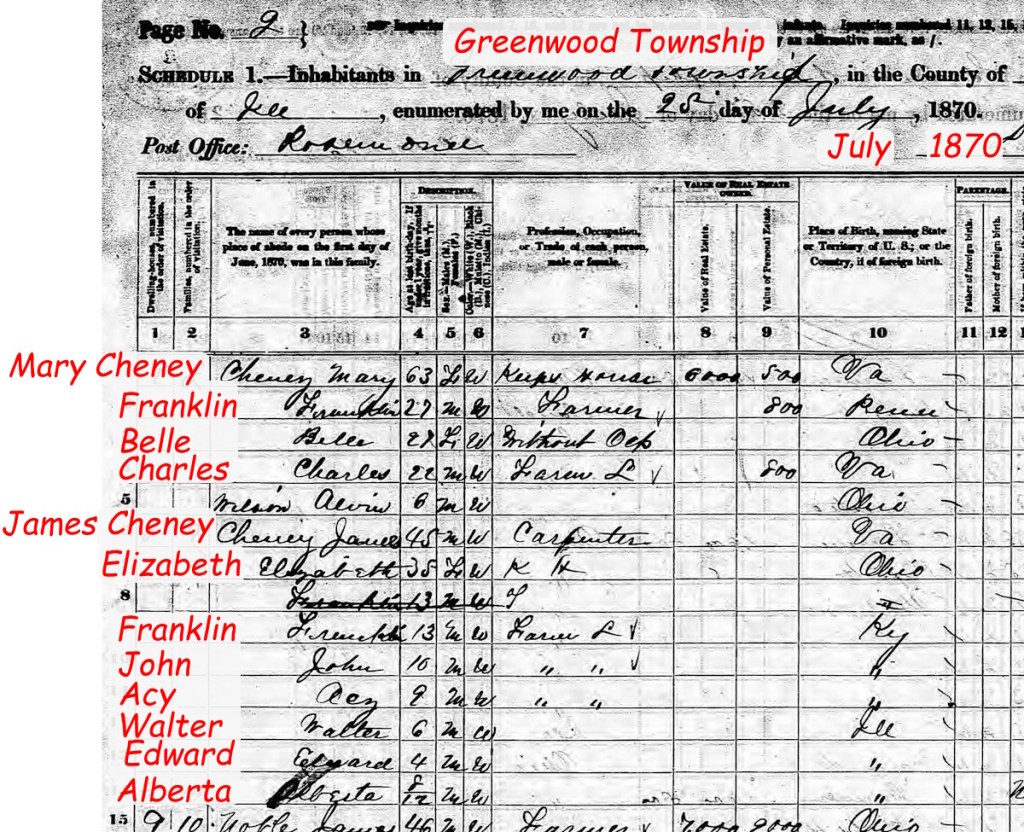 Page No. 2 }
Greenwood Township
Schedule 1.—Inhabitants in Greenwood Township, in the County of
of Ill, enumerated by me on the 25 day of July, 1870.
Post Office: Rosemond
July 1870
Dwelling-houses, numbered in the order of visitation.
Families, numbered in the order of visitation.
The name of every person whose place of abode on the first day of June, 1870, was in this family.
Description.
Age at last birth-day.
Sex.—Males (M.), Females (F.)
Profession, Occupation, or Trade of each person, male or female.
Value of Real Estate owned.
Value of Real Estate.
Value of Personal Estate.
Place of Birth, naming State or Territory of U. S.; or the Country, if of foreign birth.
Parentage.
Father of foreign birth.
Mother of foreign birth.
1 2 3 4 5 6 7 8 9 10 11 12
Mary Cheney Cheney Mary 63 F W Keeps House 6000 500 Va
Franklin Franklin 27 M W Farmer 800 Penn
Belle Belle 27 F W Without Ocp Ohio
Charles Charles 22 M W Farm L 800 Va
5 Wilson Alvin 6 M W Ohio
James Cheney Cheney James 45 M W Carpenter Va
Elizabeth Elizabeth 35 F W K H Ohio
8 Franklin 13 M W
Franklin Franklin 13 M W Farm L Ky
John John 10 M W " " "
Acy Acy 9 M W " " "
Walter Walter 6 M W Ill
Edward Edward 4 M W "
Alberta Alberta 8/12 M W "
15 9 10 Noble James 46 M W Farmer 7000 2000 Ohio